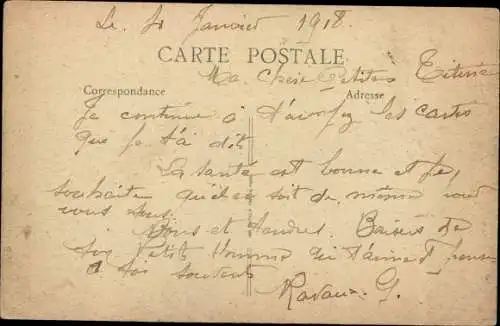 Le 31 Janvier 1918.
CARTE POSTALE
Ma Chère Petite Titine
Correspondance Adresse
Je continue à t'envoyez les cartes
que je t'ai dit
La santé est bonne et je
souhaite qu'elle soit de même
vous tous
et Baisers de
ton Petit Homme qui t'aime et pense
a toi souvent
G.